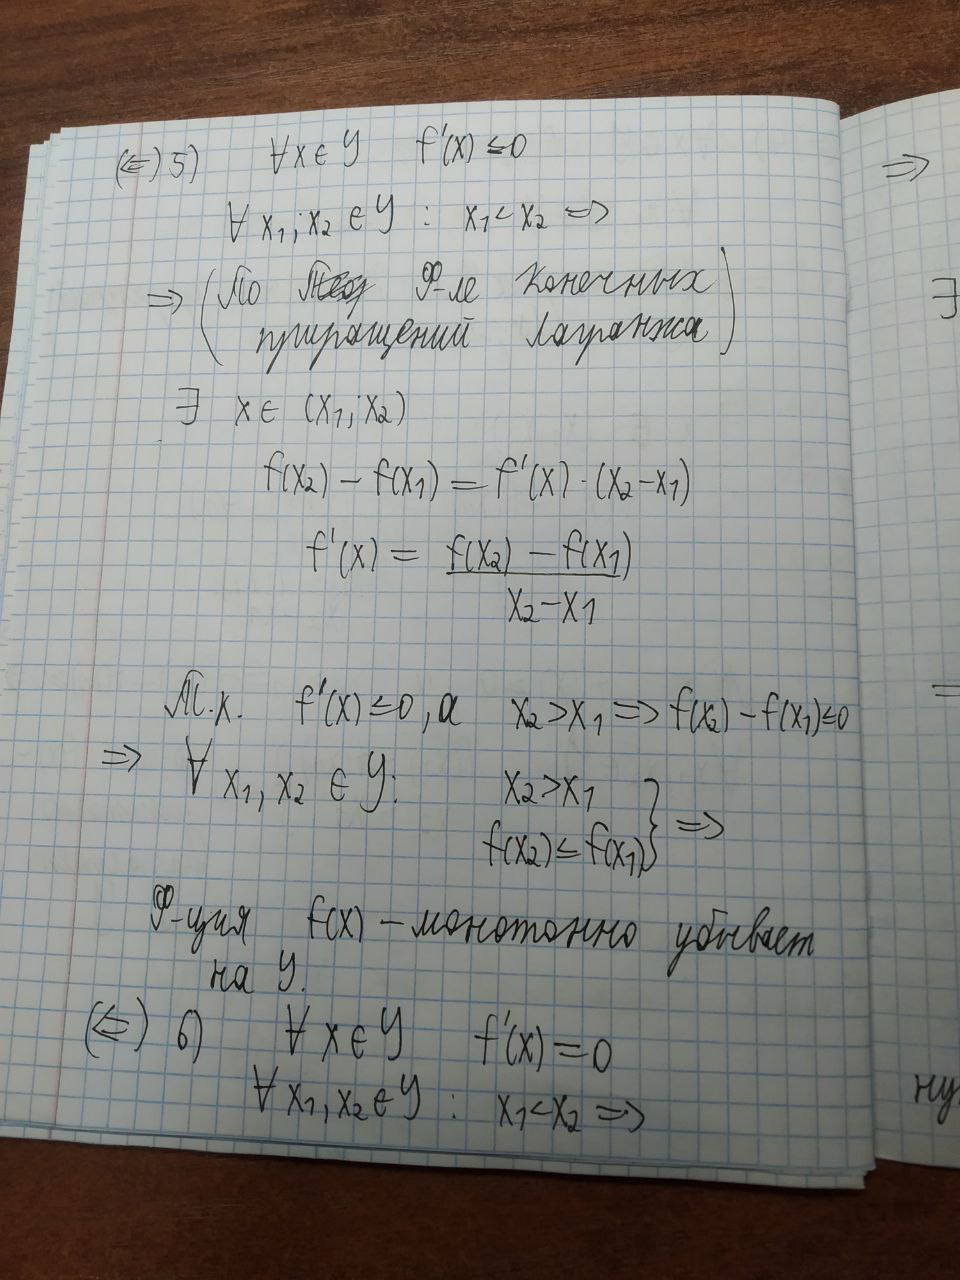 (⇐) 5) ∀x∈Y f'(x)≤0
∀ x₁; x₂ ∈ Y : x₁<x₂ ⇒
⇒ (По Ф-ле конечных
приращений Лагранжа)
∃ x ∈ (x₁; x₂)
f(x₂) – f(x₁) = f'(x) · (x₂–x₁)
f'(x) = f(x₂) – f(x₁)
x₂–x₁
Т.к. f'(x)≤0, а x₂>x₁ ⇒ f(x₂) – f(x₁)≤0
⇒ ∀ x₁, x₂ ∈ Y: x₂>x₁
f(x₂)≤f(x₁) } ⇒
Ф-ция f(x) – монотонно убывает
на Y.
(⇐) 6) ∀ x∈Y f'(x)=0
∀ x₁, x₂∈Y : x₁<x₂ ⇒
⇒
∃
=
ну